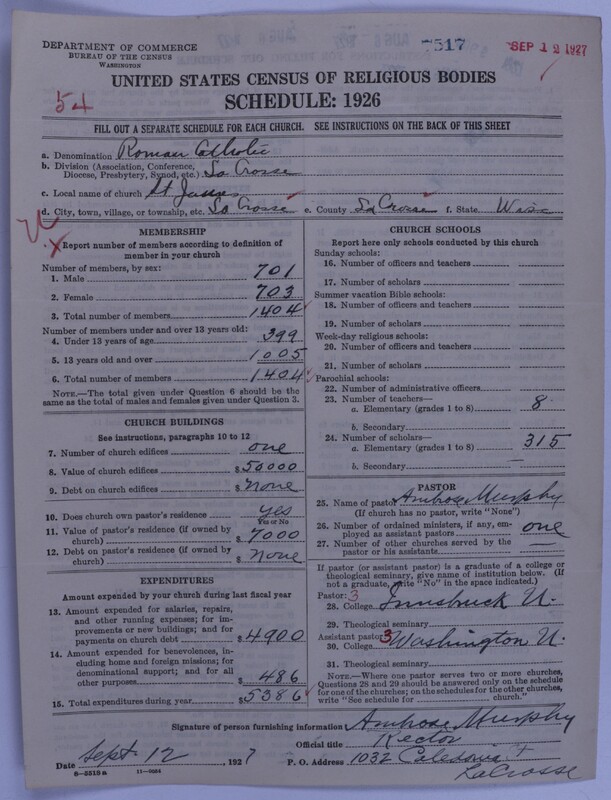 DEPARTMENT OF COMMERCE
BUREAU OF THE CENSUS
WASHINGTON
7517
SEP 12 1927
54
UNITED STATES CENSUS OF RELIGIOUS BODIES
SCHEDULE: 1926
FILL OUT A SEPARATE SCHEDULE FOR EACH CHURCH. SEE INSTRUCTIONS ON THE BACK OF THIS SHEET
a. Denomination Roman Catholic
b. Division (Association, Conference,
Diocese, Presbytery, Synod, etc.) La Crosse
c. Local name of church St James
d. City, town, village, or township, etc. La Crosse e. County La Crosse f. State Wisc
MEMBERSHIP
Report number of members according to definition of
member in your church
Number of members, by sex:
1. Male 701
2. Female 703
3. Total number of members 1404
Number of members under and over 13 years old:
4. Under 13 years of age 399
5. 13 years old and over 1005
6. Total number of members 1404
NOTE.—The total given under Question 6 should be
same as the total of males and females given under Question 3.
CHURCH BUILDINGS
See instructions, paragraphs 10 to 12
7. Number of church edifices one
8. Value of church edifices $ 50000
9. Debt on church edifices $ None
10. Does church own pastor's residence yes
Yes or No
11. Value of pastor's residence (if owned by
church) $ 7000
12. Debt on pastor's residence (if owned by
church) $ None
EXPENDITURES
Amount expended by your church during last fiscal year
13. Amount expended for salaries, repairs,
and other running expenses; for im-
provements or new buildings; and for
payments on church debt $ 4900
14. Amount expended for benevolences, in-
cluding home and foreign missions; for
denominational support; and for all
other purposes $ 486
15. Total expenditures during year $ 5386
CHURCH SCHOOLS
Report here only schools conducted by this church
Sunday schools:
16. Number of officers and teachers
17. Number of scholars
Summer vacation Bible schools:
18. Number of officers and teachers
19. Number of scholars
Week-day religious schools:
20. Number of officers and teachers
21. Number of scholars
Parochial schools:
22. Number of administrative officers
23. Number of teachers—
a. Elementary (grades 1 to 8) 8
b. Secondary
24. Number of scholars—
a. Elementary (grades 1 to 8) 315
b. Secondary
PASTOR
25. Name of pastor Ambrose Murphy
(If church has no pastor, write "None")
26. Number of ordained ministers, if any, em-
ployed as assistant pastors one
27. Number of other churches served by the
pastor or his assistants —
If pastor (or assistant pastor) is a graduate of a college or
theological seminary, give name of institution below. (If
not a graduate, write "No" in the space indicated.)
Pastor: 3
28. College Innsbruck U.
29. Theological seminary
Assistant pastor: 3
30. College Washington U.
31. Theological seminary
NOTE.—Where one pastor serves two or more churches,
Questions 28 and 29 should be answered only on the schedule
for one of the churches; on the schedules for the other churches,
write "See schedule for church."
Signature of person furnishing information Ambrose Murphy
Official title Rector
Date Sept. 12, 1927 P. O. Address 1032 Caledonia St
LaCrosse
8-5518a 11-9084